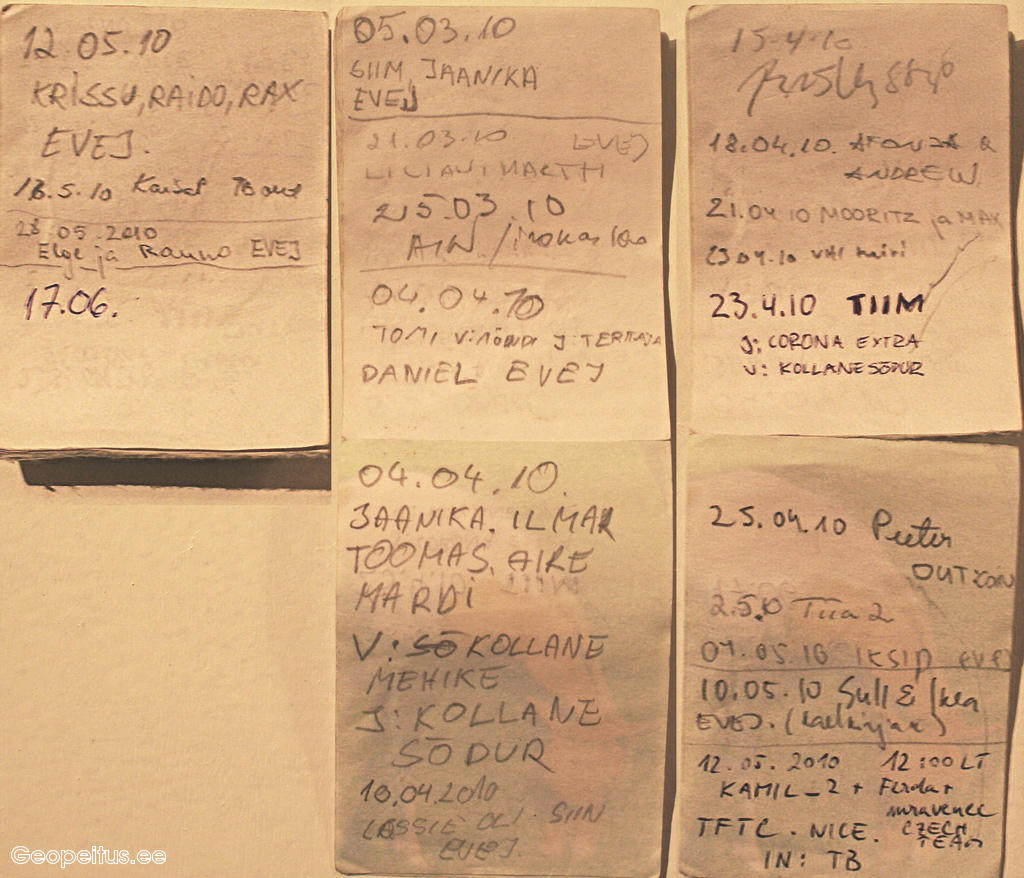 12.05.10
KRISSU, RAIDO, RAX
EVEJ.
18.5.10 Kaisa TB out
28.05.2010
Elge ja Rauno EVEJ
17.06.
05.03.10
SIIM, JAANIKA
EVEJ
21.03.10 EVEJ
LILIAN, MARTTI
25.03.10
AIN /
04.04.10
TOMI, V: J:
DANIEL EVEJ
04.04.10.
JAANIKA, ILMAR
TOOMAS, AIRE
MARDI
V: SÕ KOLLANE
MEHIKE
J: KOLLANE
SÕDUR
10.04.2010
LESSIE OLI SIIN
EVEJ.
15.4.10
18.04.10. &
ANDREW
21.04.10 MOORITZ ja MAX
23.04.10
23.4.10 TIIM
J: CORONA EXTRA
V: KOLLANE SÕDUR
25.04.10 Peeter
2.5.0 Tiia 2
07.05.10 IKSID EVEJ
10.05.10
EVEJ.
12.05.2010 12:00 LT
KAMIL_2 + Ferda +
mravenec
TFTC. NICE. CZECH
TEAM
IN: TB
Geopeitus.ee